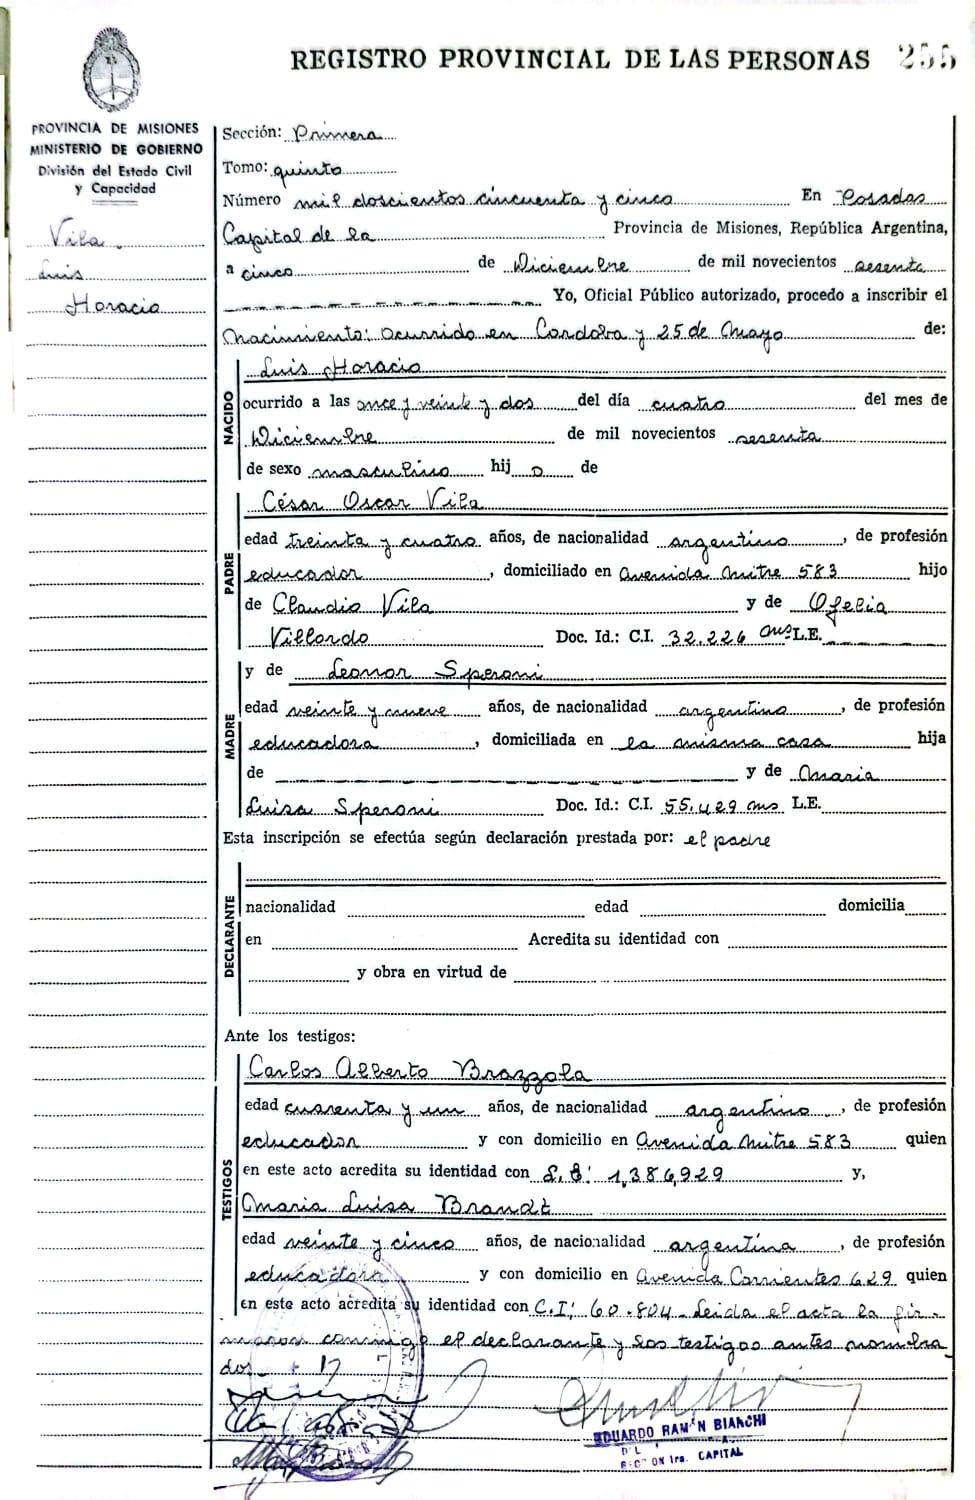 REGISTRO PROVINCIAL DE LAS PERSONAS 255
PROVINCIA DE MISIONES
MINISTERIO DE GOBIERNO
División del Estado Civil
y Capacidad
Vila
Luis
Horacio
Sección: Primera
Tomo: quinto
Número mil doscientos cincuenta y cinco En Posadas
Capital de la Provincia de Misiones, República Argentina,
a cinco de Diciembre de mil novecientos sesenta
Yo, Oficial Público autorizado, procedo a inscribir el
Nacimiento: ocurrido en Cordoba y 25 de Mayo de:
NACIDO
Luis Horacio
ocurrido a las once y veinte y dos del día cuatro del mes de
Diciembre de mil novecientos sesenta
de sexo masculino hij o de
PADRE
César Oscar Vila
edad treinta y cuatro años, de nacionalidad argentino, de profesión
educador, domiciliado en Avenida Mitre 583 hijo
de Claudio Vila y de Ofelia
Villordo Doc. Id.: C.I. 32.226 Mns L.E.
MADRE
y de Leonor Speroni
edad veinte y nueve años, de nacionalidad argentina, de profesión
educadora, domiciliada en la misma casa hija
de y de Maria
Luisa Speroni Doc. Id.: C.I. 55.429 Mns L.E.
Esta inscripción se efectúa según declaración prestada por: el padre
DECLARANTE
nacionalidad edad domicilia
en Acredita su identidad con
y obra en virtud de
Ante los testigos:
TESTIGOS
Carlos Alberto Brazzola
edad cuarenta y un años, de nacionalidad argentino, de profesión
educador y con domicilio en Avenida Mitre 583 quien
en este acto acredita su identidad con 1,386,929 y,
Maria Luisa Brandt
edad veinte y cinco años, de nacionalidad argentina, de profesión
educadora y con domicilio en Avenida Corrientes 629 quien
en este acto acredita su identidad con C.I: 60.804 - Leida el acta la fir-
maron conmigo el declarante y los testigos antes nombra
dos -
EDUARDO RAMON BIANCHI
1ra. CAPITAL